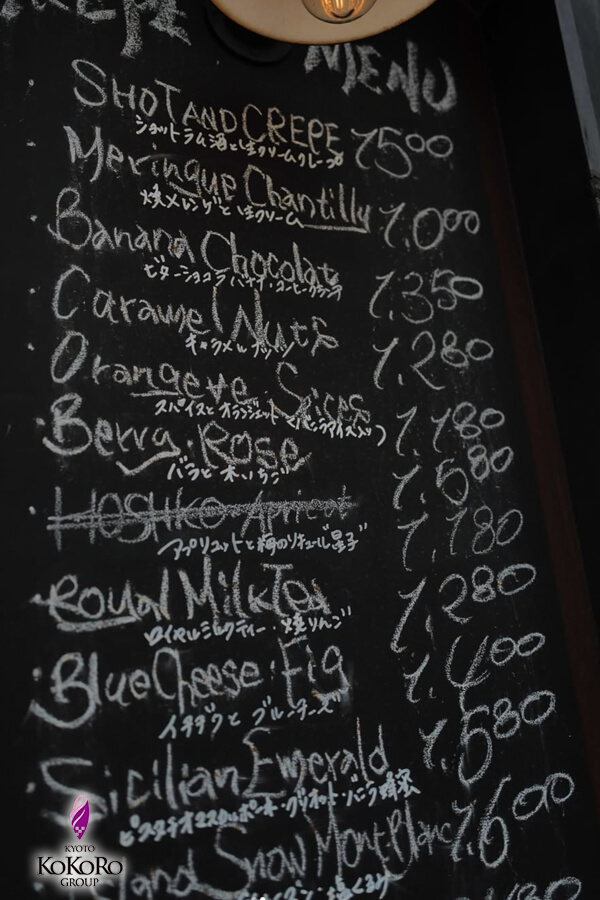 MENU
SHOT AND CREPE 1500
ショットラム酒と生クリームクレープ
Meringue Chantilly 1.000
焼メレンゲと生クリーム
Banana Chocolat 1.350
ビターショコラ バナナ
Caramel Nuts 1.280
キャラメルナッツ
Orange 1.180
スパイスとオランジェット(バニラアイス入り)
Berry Rose 1.680
バラと木いちご
HOSHIKO Apricot 1.180
アプリコットと梅のリキュール"星子"
Royal Milk Tea 1.280
ロイヤルミルクティー・焼りんご
Blue Cheese Fig 1.400
イチヂクとブルーチーズ
Sicilian Emerald 1.580
ピスタチオ
Snow Mont Blanc 1.600
KYOTO
KOKORO
GROUP